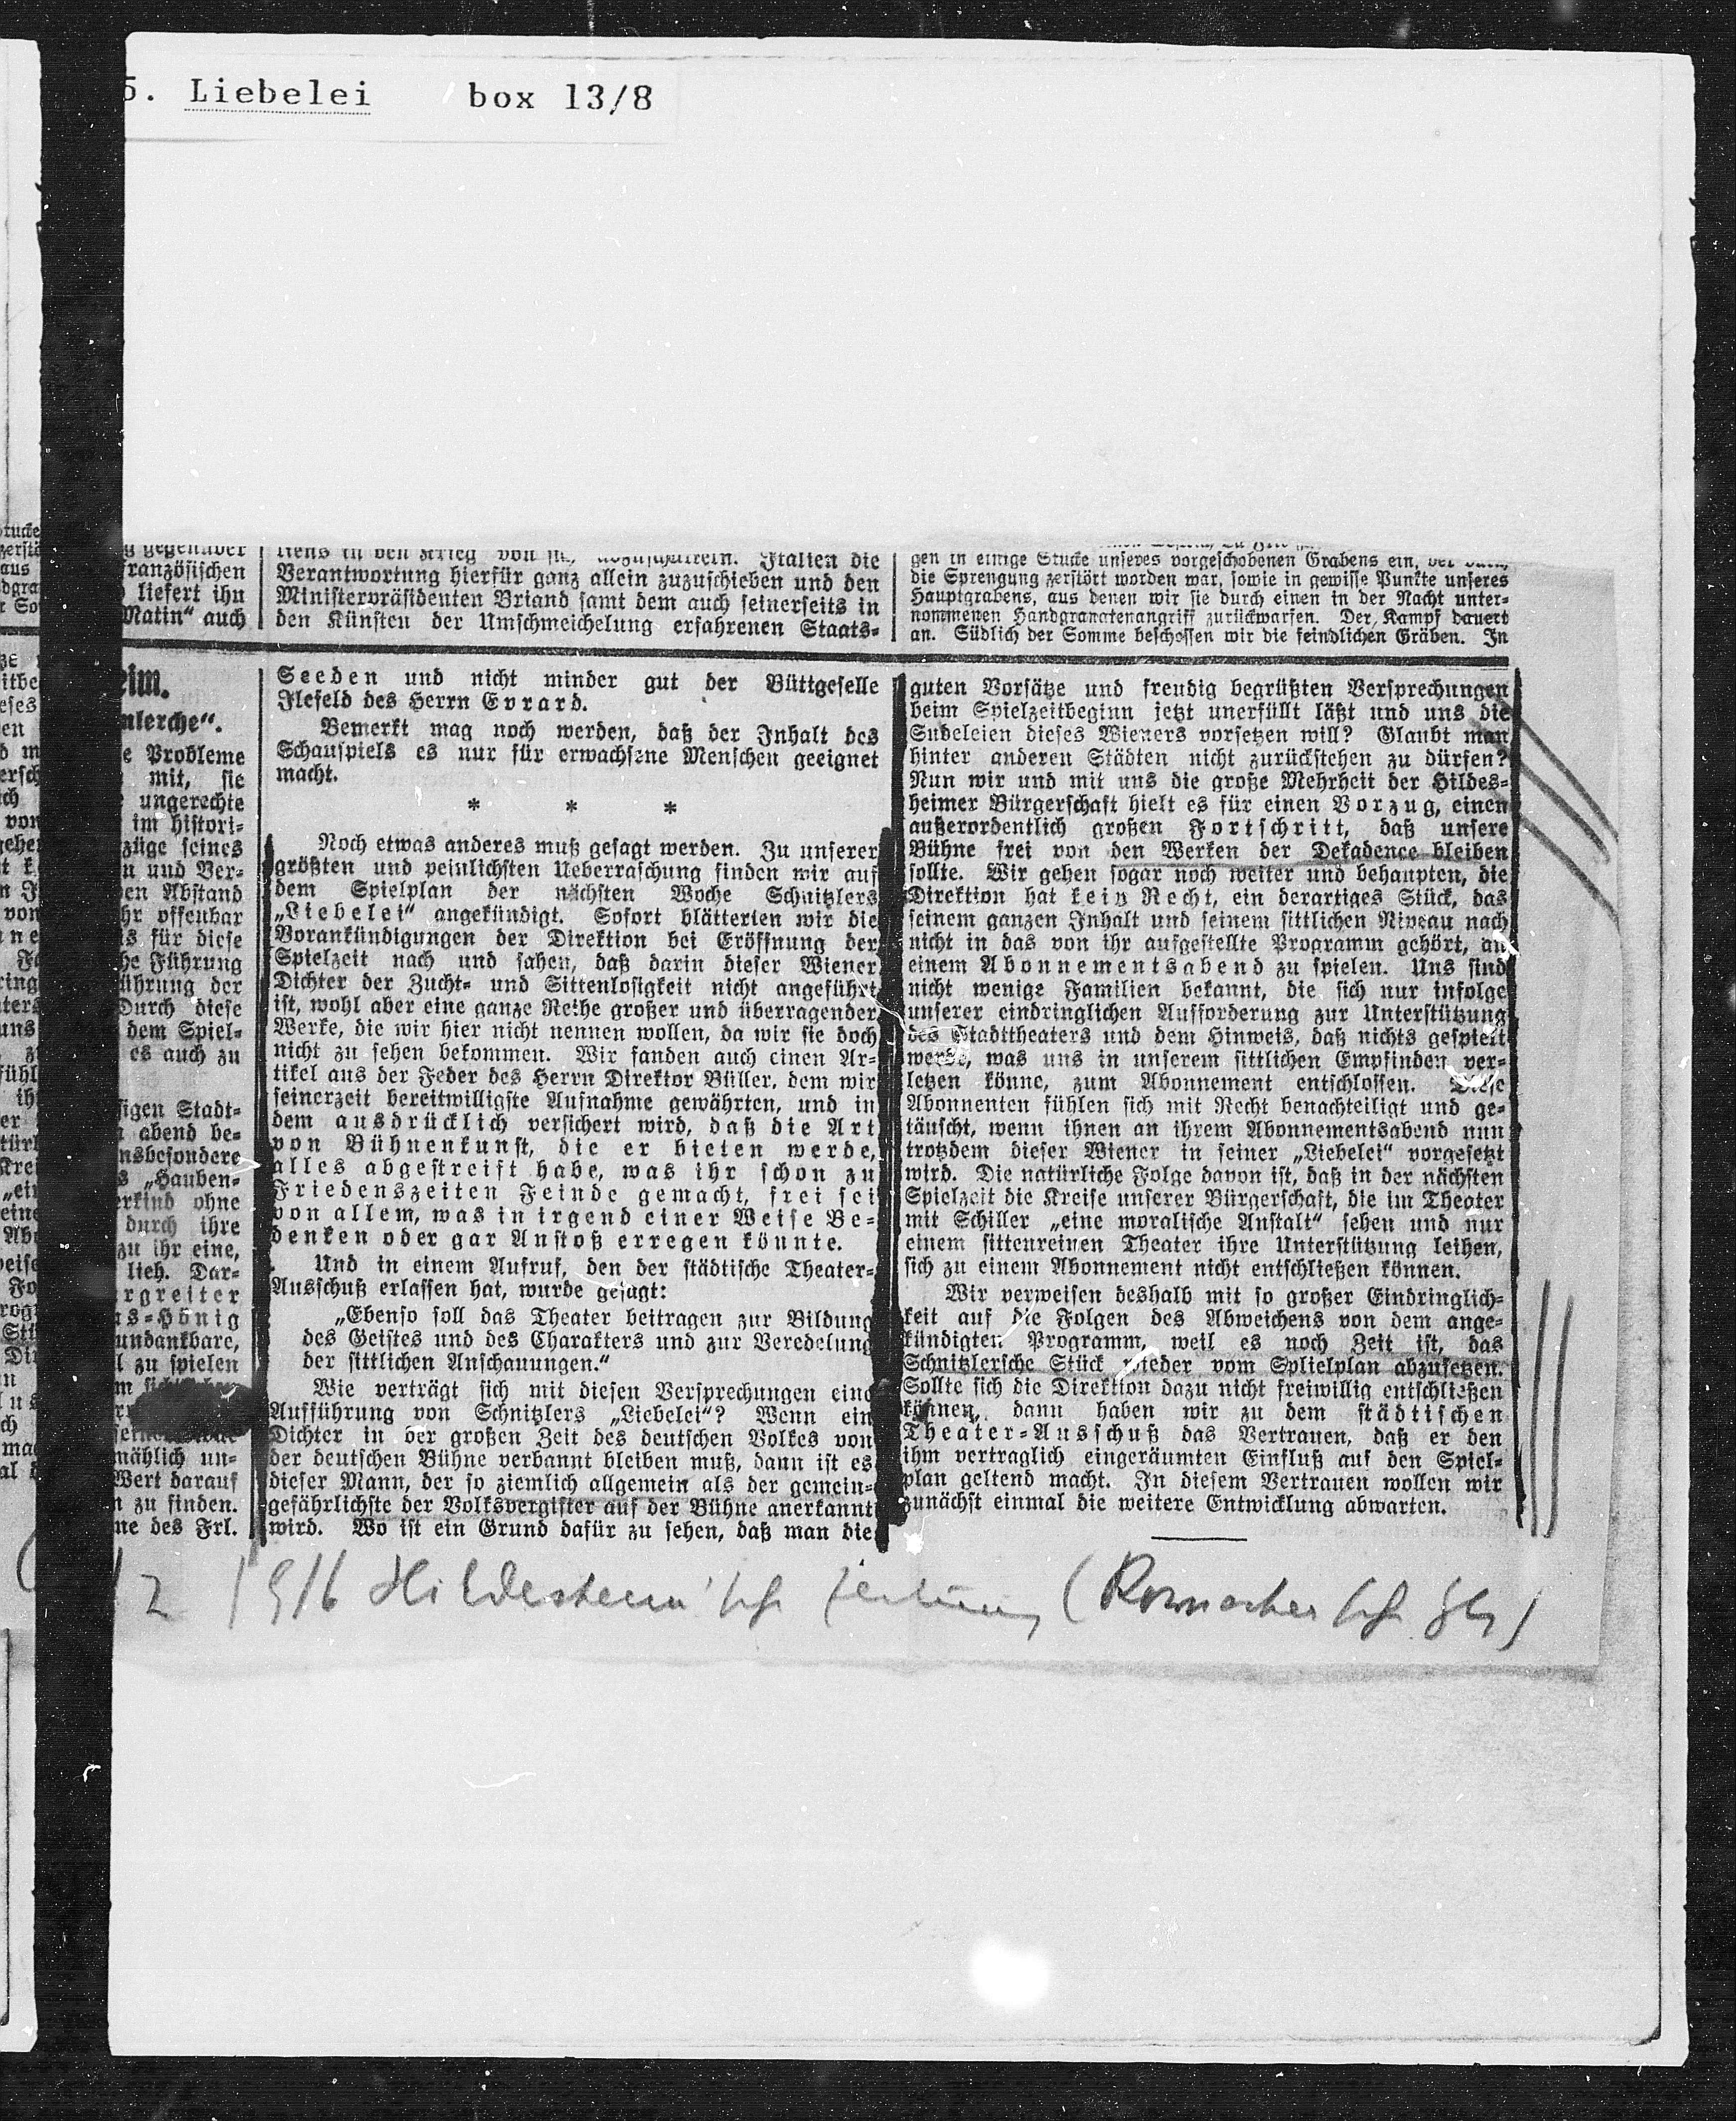 5. Liebelei box 13/8
gegenüber
französischen
liefert ihn
Matin“ auch
Italien die
Verantwortung hierfür ganz allein zuzuschieben und den
Ministerpräsidenten Briand samt dem auch seinerseits in
den Künsten der Umschmeichelung erfahrenen Staats-
gen in einige Stücke unseres vorgeschobenen Grabens ein, der durch
die Sprengung zerstört worden war, sowie in gewisse Punkte unseres
Hauptgrabens, aus denen wir sie durch einen in der Nacht unter-
nommenen Handgranatenangriff zurückwarfen. Der Kampf dauert
an. Südlich der Somme beschossen wir die feindlichen Gräben. In
eim.
nlerche“.
e Probleme
mit, sie
ungerechte
im histori-
züge seines
n und Ver-
en Abstand
hr offenbar
s für diese
he Führung
ührung der
Durch diese
dem Spiel-
es auch zu
sigen Stadt-
abend be-
nsbesondere
s „Hauben-
erkind ohne
durch ihre
zu ihr eine,
lieh. Dar-
rgreiter
s-Hönig
undankbare,
l zu spielen
mählich un-
Wert darauf
n zu finden.
ne des Frl.
Seeden und nicht minder gut der Büttgeselle
Ilefeld des Herrn Evrard.
Bemerkt mag noch werden, daß der Inhalt des
Schauspiels es nur für erwachsene Menschen geeignet
macht.
* * *
Noch etwas anderes muß gesagt werden. Zu unserer
größten und peinlichsten Ueberraschung finden wir auf
dem Spielplan der nächsten Woche Schnitzlers
„Liebelei“ angekündigt. Sofort blätterten wir die
Vorankündigungen der Direktion bei Eröffnung der
Spielzeit nach und sahen, daß darin dieser Wiener
Dichter der Zucht- und Sittenlosigkeit nicht angeführt
ist, wohl aber eine ganze Reihe großer und überragender
Werke, die wir hier nicht nennen wollen, da wir sie doch
nicht zu sehen bekommen. Wir fanden auch einen Ar-
tikel aus der Feder des Herrn Direktor Büller, dem wir
seinerzeit bereitwilligste Aufnahme gewährten, und in
dem ausdrücklich versichert wird, daß die Art
von Bühnenkunst, die er bieten werde,
alles abgestreift habe, was ihr schon zu
Friedenszeiten Feinde gemacht, frei sei
von allem, was in irgend einer Weise Be-
denken oder gar Anstoß erregen könnte.
Und in einem Aufruf, den der städtische Theater-
Ausschuß erlassen hat, wurde gesagt:
„Ebenso soll das Theater beitragen zur Bildung
des Geistes und des Charakters und zur Veredelung
der sittlichen Anschauungen.“
Wie verträgt sich mit diesen Versprechungen eine
Aufführung von Schnitzlers „Liebelei“? Wenn ein
Dichter in der großen Zeit des deutschen Volkes von
der deutschen Bühne verbannt bleiben muß, dann ist es
dieser Mann, der so ziemlich allgemein als der gemein-
gefährlichste der Volksvergifter auf der Bühne anerkannt
wird. Wo ist ein Grund dafür zu sehen, daß man die
guten Vorsätze und freudig begrüßten Versprechungen
beim Spielzeitbeginn jetzt unerfüllt läßt und uns die
Sudeleien dieses Wieners vorsetzen will? Glaubt man
hinter anderen Städten nicht zurückstehen zu dürfen?
Nun wir und mit uns die große Mehrheit der Hildes-
heimer Bürgerschaft hielt es für einen Vorzug, einen
außerordentlich großen Fortschritt, daß unsere
Bühne frei von den Werken der Dekadence bleiben
sollte. Wir gehen sogar noch weiter und behaupten, die
Direktion hat kein Recht, ein derartiges Stück, das
seinem ganzen Inhalt und seinem sittlichen Niveau nach
nicht in das von ihr aufgestellte Programm gehört, an
einem Abonnementsabend zu spielen. Uns sind
nicht wenige Familien bekannt, die sich nur infolge
unserer eindringlichen Aufforderung zur Unterstützung
des Stadttheaters und dem Hinweis, daß nichts gespielt
werde, was uns in unserem sittlichen Empfinden ver-
letzen könne, zum Abonnement entschlossen. Diese
Abonnenten fühlen sich mit Recht benachteiligt und ge-
täuscht, wenn ihnen an ihrem Abonnementsabend nun
trotzdem dieser Wiener in seiner „Liebelei“ vorgesetzt
wird. Die natürliche Folge davon ist, daß in der nächsten
Spielzeit die Kreise unserer Bürgerschaft, die im Theater
mit Schiller „eine moralische Anstalt“ sehen und nur
einem sittenreinen Theater ihre Unterstützung leihen,
sich zu einem Abonnement nicht entschließen können.
Wir verweisen deshalb mit so großer Eindringlich-
keit auf die Folgen des Abweichens von dem ange-
kündigten Programm, weil es noch Zeit ist, das
Schnitzlersche Stück wieder vom Splielplan abzusetzen.
Sollte sich die Direktion dazu nicht freiwillig entschließen
können, dann haben wir zu dem städtischen
Theater-Ausschuß das Vertrauen, daß er den
ihm vertraglich eingeräumten Einfluß auf den Spiel-
plan geltend macht. In diesem Vertrauen wollen wir
zunächst einmal die weitere Entwicklung abwarten.
2 1916